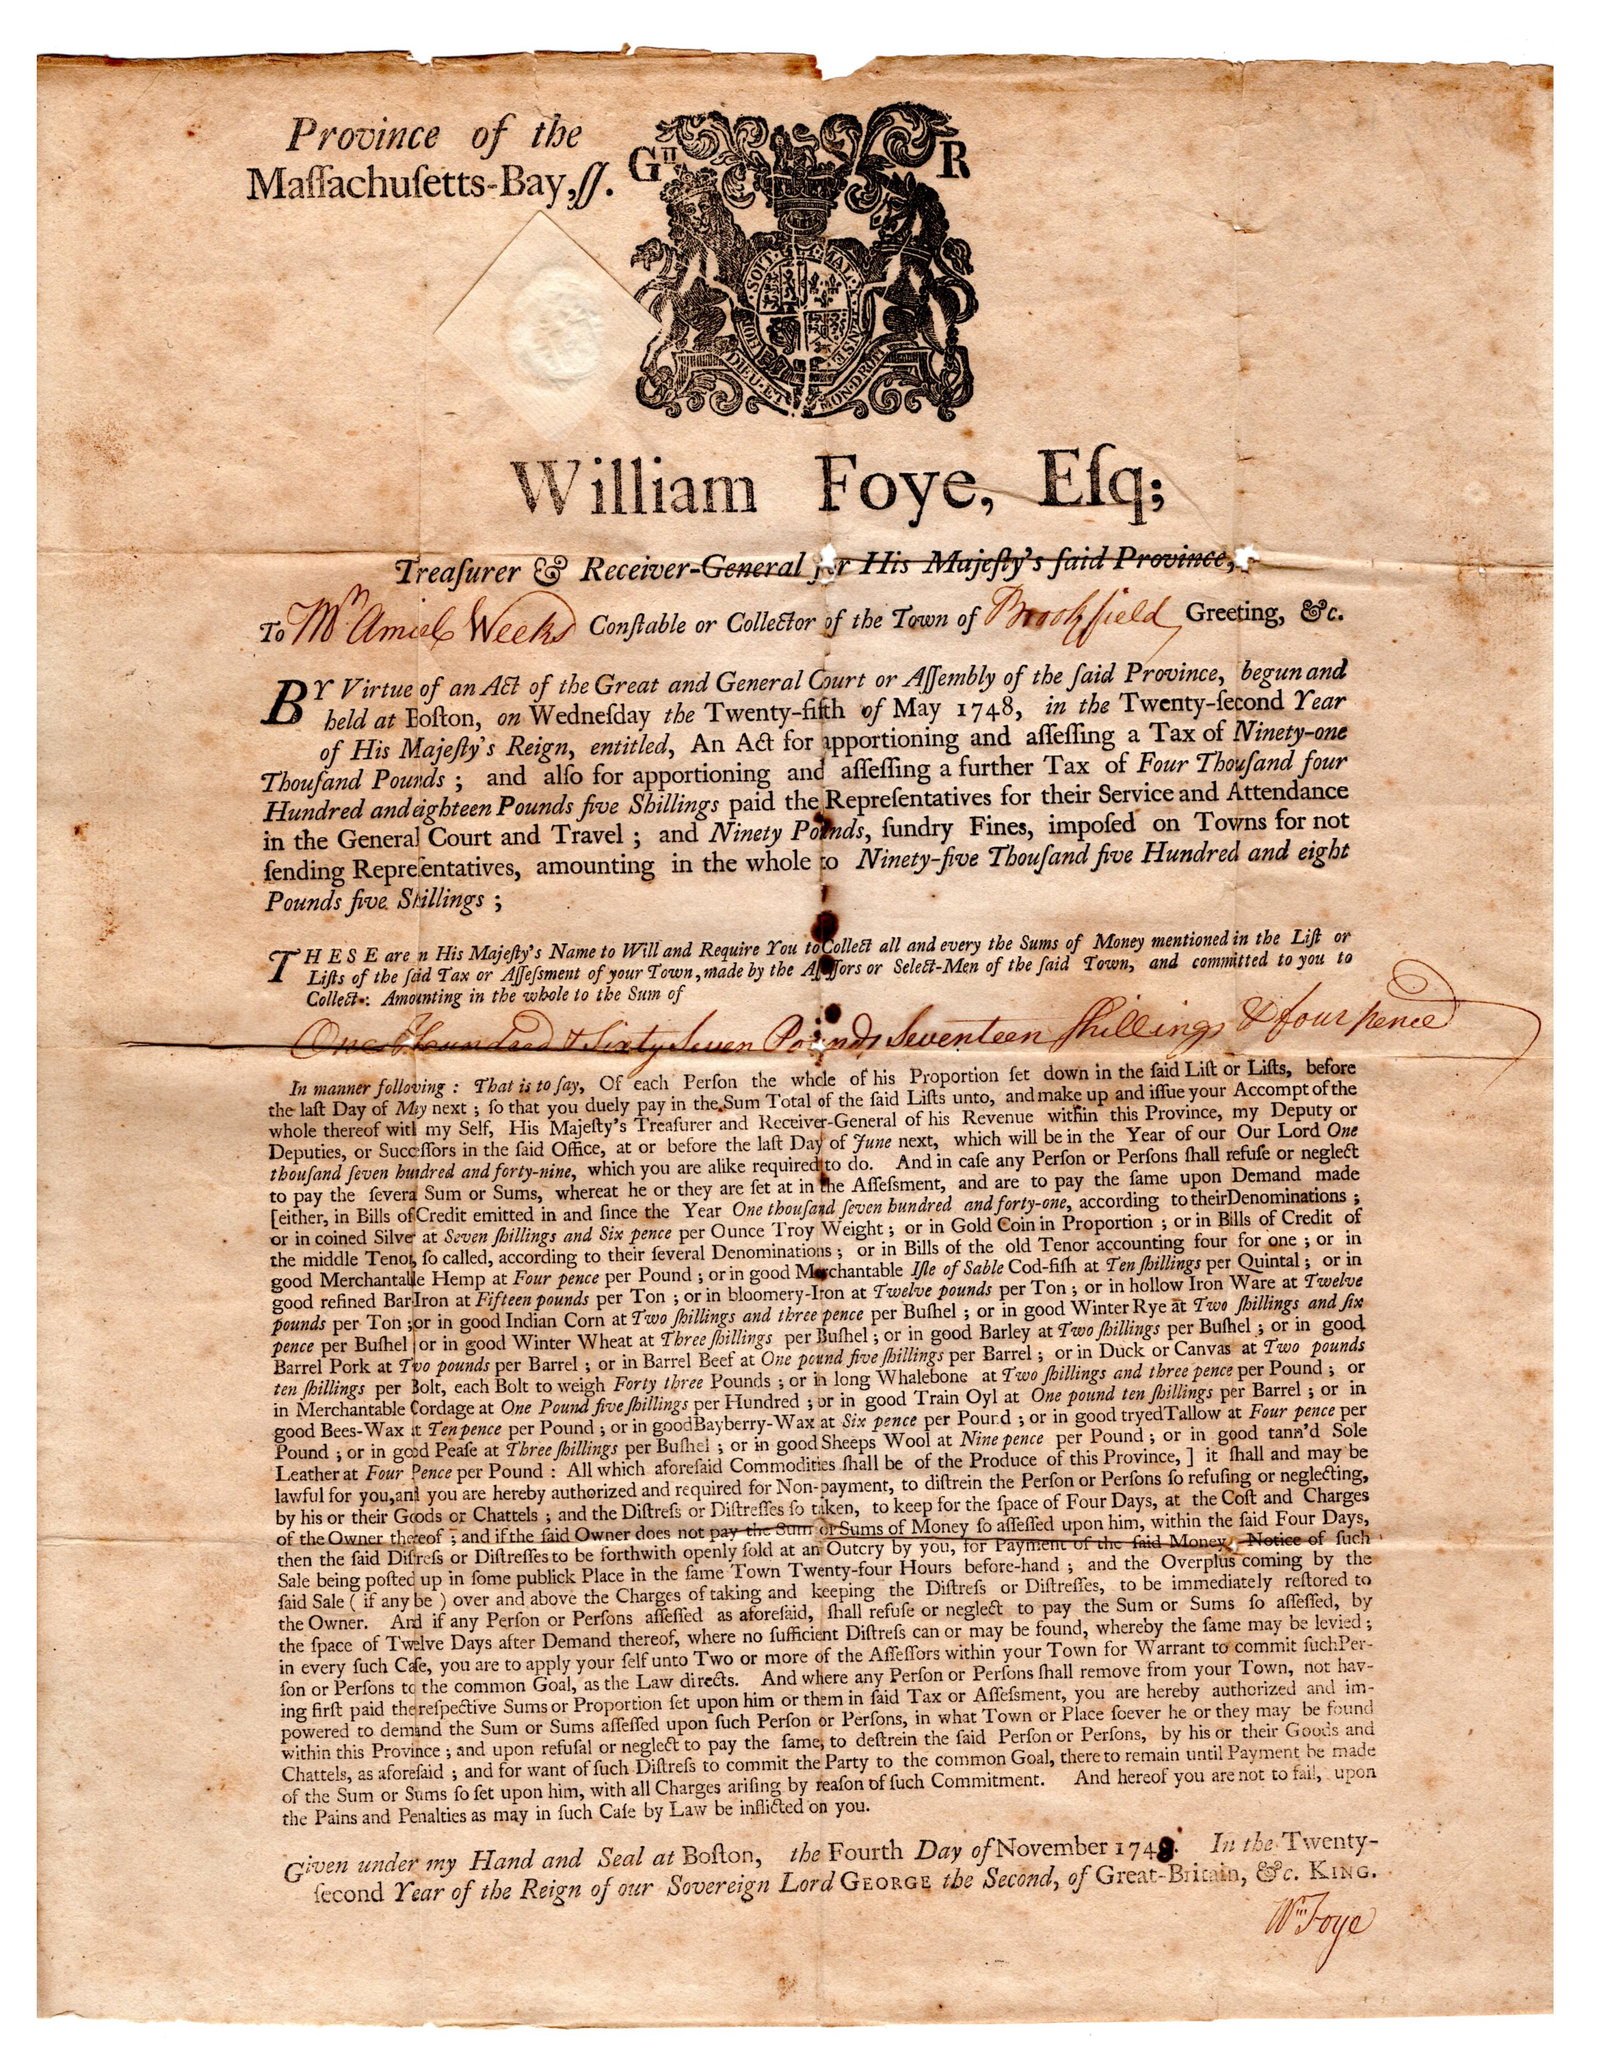 Province of the
Maſſachuſetts-Bay, ſſ.
GII R
HONI SOIT QUI MAL Y PENSE
DIEU ET MON DROIT
William Foye, Eſq;
Treaſurer & Receiver-General for His Majeſty's ſaid Province,
To Mr Amiel Weeks Conſtable or Collector of the Town of Brookfield Greeting, &c.
BY Virtue of an Act of the Great and General Court or Aſſembly of the ſaid Province, begun and
held at Boſton, on Wedneſday the Twenty-fifth of May 1748, in the Twenty-ſecond Year
of His Majeſty's Reign, entitled, An Act for apportioning and aſſeſſing a Tax of Ninety-one
Thouſand Pounds; and alſo for apportioning and aſſeſſing a further Tax of Four Thouſand four
Hundred and eighteen Pounds five Shillings paid the Repreſentatives for their Service and Attendance
in the General Court and Travel; and Ninety Pounds, ſundry Fines, impoſed on Towns for not
ſending Repreſentatives, amounting in the whole to Ninety-five Thouſand five Hundred and eight
Pounds five Shillings;
THESE are in His Majeſty's Name to Will and Require You to Collect all and every the Sums of Money mentioned in the Liſt or
Liſts of the ſaid Tax or Aſſeſsment of your Town, made by the Aſſeſſors or Select-Men of the ſaid Town, and committed to you to
Collect: Amounting in the whole to the Sum of
One Hundred & Sixty Seven Pounds Seventeen ſhillings & four pence
In manner following: That is to ſay, Of each Perſon the whole of his Proportion ſet down in the ſaid Liſt or Liſts, before
the laſt Day of May next; ſo that you duely pay in the Sum Total of the ſaid Liſts unto, and make up and iſſue your Accompt of the
whole thereof with my Self, His Majeſty's Treaſurer and Receiver-General of his Revenue within this Province, my Deputy or
Deputies, or Succeſſors in the ſaid Office, at or before the laſt Day of June next, which will be in the Year of our Our Lord One
thouſand ſeven hundred and forty-nine, which you are alike required to do. And in caſe any Perſon or Perſons ſhall refuſe or neglect
to pay the ſeveral Sum or Sums, whereat he or they are ſet at in the Aſſeſsment, and are to pay the ſame upon Demand made
[either, in Bills of Credit emitted in and ſince the Year One thouſand ſeven hundred and forty-one, according to their Denominations;
or in coined Silver at Seven ſhillings and Six pence per Ounce Troy Weight; or in Gold Coin in Proportion; or in Bills of Credit of
the middle Tenor, ſo called, according to their ſeveral Denominations; or in Bills of the old Tenor accounting four for one; or in
good Merchantable Hemp at Four pence per Pound; or in good Merchantable Iſle of Sable Cod-fiſh at Ten ſhillings per Quintal; or in
good refined Bar-Iron at Fifteen pounds per Ton; or in bloomery-Iron at Twelve pounds per Ton; or in hollow Iron Ware at Twelve
pounds per Ton; or in good Indian Corn at Two ſhillings and three pence per Buſhel; or in good Winter Rye at Two ſhillings and ſix
pence per Buſhel; or in good Winter Wheat at Three ſhillings per Buſhel; or in good Barley at Two ſhillings per Buſhel; or in good
Barrel Pork at Two pounds per Barrel; or in Barrel Beef at One pound five ſhillings per Barrel; or in Duck or Canvas at Two pounds
ten ſhillings per Bolt, each Bolt to weigh Forty three Pounds; or in long Whalebone at Two ſhillings and three pence per Pound; or
in Merchantable Cordage at One Pound five ſhillings per Hundred; or in good Train Oyl at One pound ten ſhillings per Barrel; or in
good Bees-Wax at Ten pence per Pound; or in good Bayberry-Wax at Six pence per Pound; or in good tryed Tallow at Four pence per
Pound; or in good Peaſe at Three ſhillings per Buſhel; or in good Sheeps Wool at Nine pence per Pound; or in good tann'd Sole
Leather at Four Pence per Pound: All which aforeſaid Commodities ſhall be of the Produce of this Province,] it ſhall and may be
lawful for you, and you are hereby authorized and required for Non-payment, to diſtrein the Perſon or Perſons ſo refuſing or neglecting,
by his or their Goods or Chattels; and the Diſtreſs or Diſtreſſes ſo taken, to keep for the ſpace of Four Days, at the Coſt and Charges
of the Owner thereof; and if the ſaid Owner does not pay the Sum or Sums of Money ſo aſſeſſed upon him, within the ſaid Four Days,
then the ſaid Diſtreſs or Diſtreſſes to be forthwith openly ſold at an Outcry by you, for Payment of the ſaid Money, Notice of ſuch
Sale being poſted up in ſome publick Place in the ſame Town Twenty-four Hours before-hand; and the Overplus coming by the
ſaid Sale (if any be) over and above the Charges of taking and keeping the Diſtreſs or Diſtreſſes, to be immediately reſtored to
the Owner. And if any Perſon or Perſons aſſeſſed as aforeſaid, ſhall refuſe or neglect to pay the Sum or Sums ſo aſſeſſed, by
the ſpace of Twelve Days after Demand thereof, where no ſufficient Diſtreſs can or may be found, whereby the ſame may be levied;
in every ſuch Caſe, you are to apply your ſelf unto Two or more of the Aſſeſſors within your Town for Warrant to commit ſuch Per-
ſon or Perſons to the common Goal, as the Law directs. And where any Perſon or Perſons ſhall remove from your Town, not hav-
ing firſt paid the reſpective Sums or Proportion ſet upon him or them in ſaid Tax or Aſſeſsment, you are hereby authorized and im-
powered to demand the Sum or Sums aſſeſſed upon ſuch Perſon or Perſons, in what Town or Place ſoever he or they may be found
within this Province; and upon refuſal or neglect to pay the ſame, to deſtrein the ſaid Perſon or Perſons, by his or their Goods and
Chattels, as aforeſaid; and for want of ſuch Diſtreſs to commit the Party to the common Goal, there to remain until Payment be made
of the Sum or Sums ſo ſet upon him, with all Charges ariſing by reaſon of ſuch Commitment. And hereof you are not to fail, upon
the Pains and Penalties as may in ſuch Caſe by Law be inflicted on you.
Given under my Hand and Seal at Boſton, the Fourth Day of November 1748. In the Twenty-
ſecond Year of the Reign of our Sovereign Lord GEORGE the Second, of Great-Britain, &c. KING.
Wm Foye